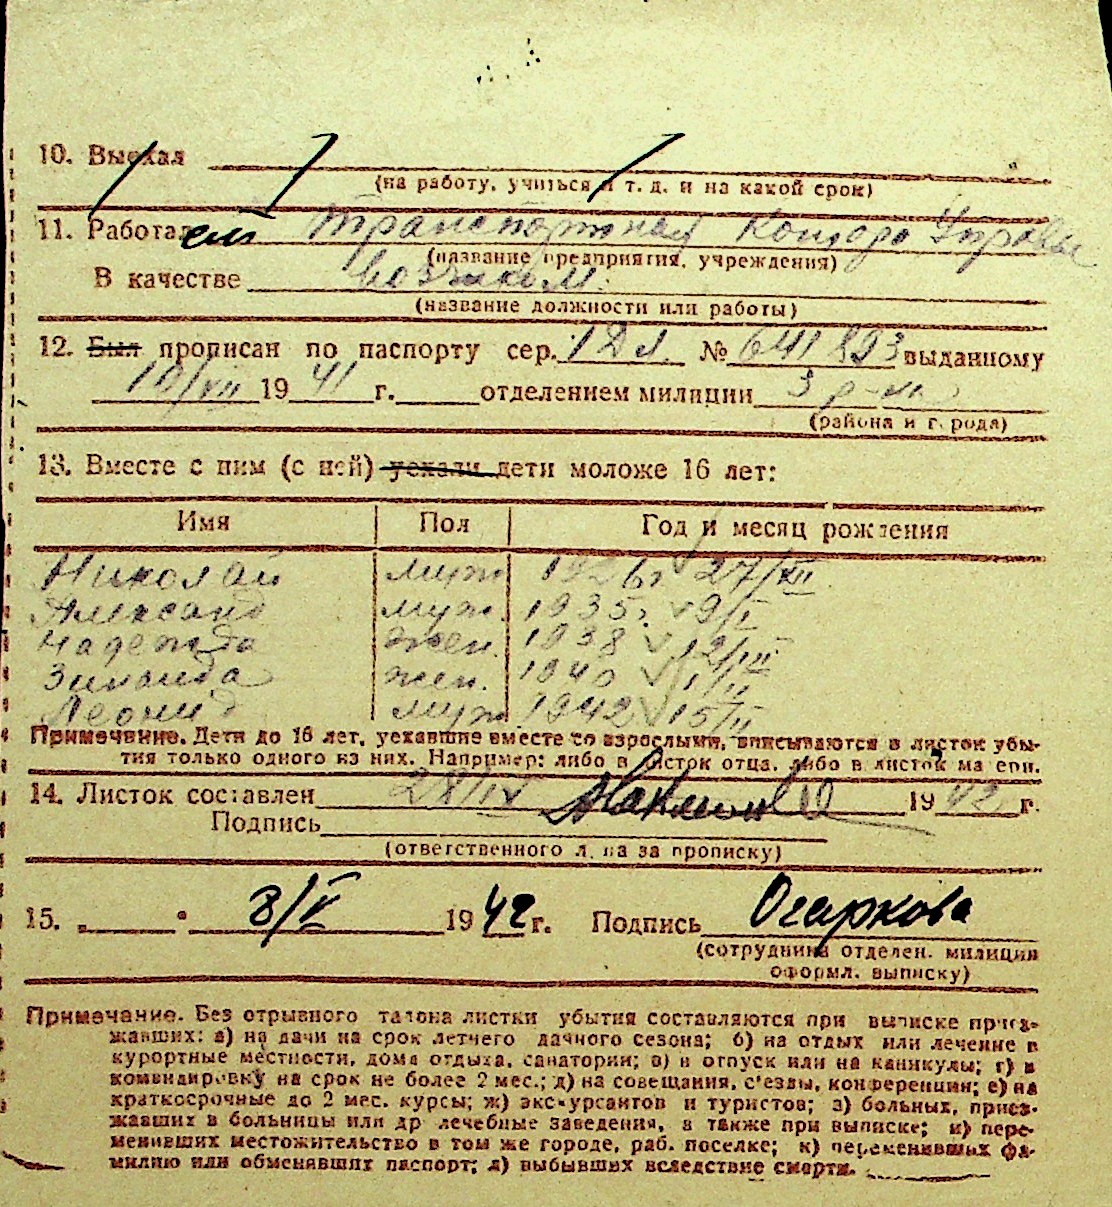 10. Выехал
(на работу, учиться и т. д. и на какой срок)
11. Работает Транспортная Контора Управы
(название предприятия, учреждения)
В качестве возчиком.
(название должности или работы)
12. Был прописан по паспорту сер. 1 Дл. № 641893 выданному
10/VII 1941 г. отделением милиции 3 р-на
(района и города)
13. Вместе с ним (с ней) уехали дети моложе 16 лет:
Имя Пол Год и месяц рождения
Николай муж 192 г 27/XII
Александ муж. 1935 г. 9/I
Надежда жен. 1938 12/III
Зинаида жен. 1940 1/II
Леонид муж 1942 15/II
Примечание. Дети до 16 лет, уехавшие вместе со взрослыми, вписываются в листок убы-
тия только одного из них. Например: либо в листок отца, либо в листок матери.
14. Листок составлен 28/IV 1942 г.
Подпись
(ответственного лица за прописку)
15. 8/V 1942 г. Подпись Огаркова
(сотрудника отделен. милиции
оформл. выписку)
Примечание. Без отрывного талона листки убытия составляются при выписке приез-
жавших: а) на дачи на срок летнего дачного сезона; б) на отдых или лечение в
курортные местности, дома отдыха, санатории; в) в отпуск или на каникулы; г) в
командировку на срок не более 2 мес.; д) на совещания, с'езды, конференции; е) на
краткосрочные до 2 мес. курсы; ж) экскурсантов и туристов; з) больных, приез-
жавших в больницы или др лечебные заведения, а также при выписке; и) пере-
менивших местожительство в том же городе, раб. поселке; к) переменивших фа-
милию или обменявших паспорт; л) выбывших вследствие смерти.